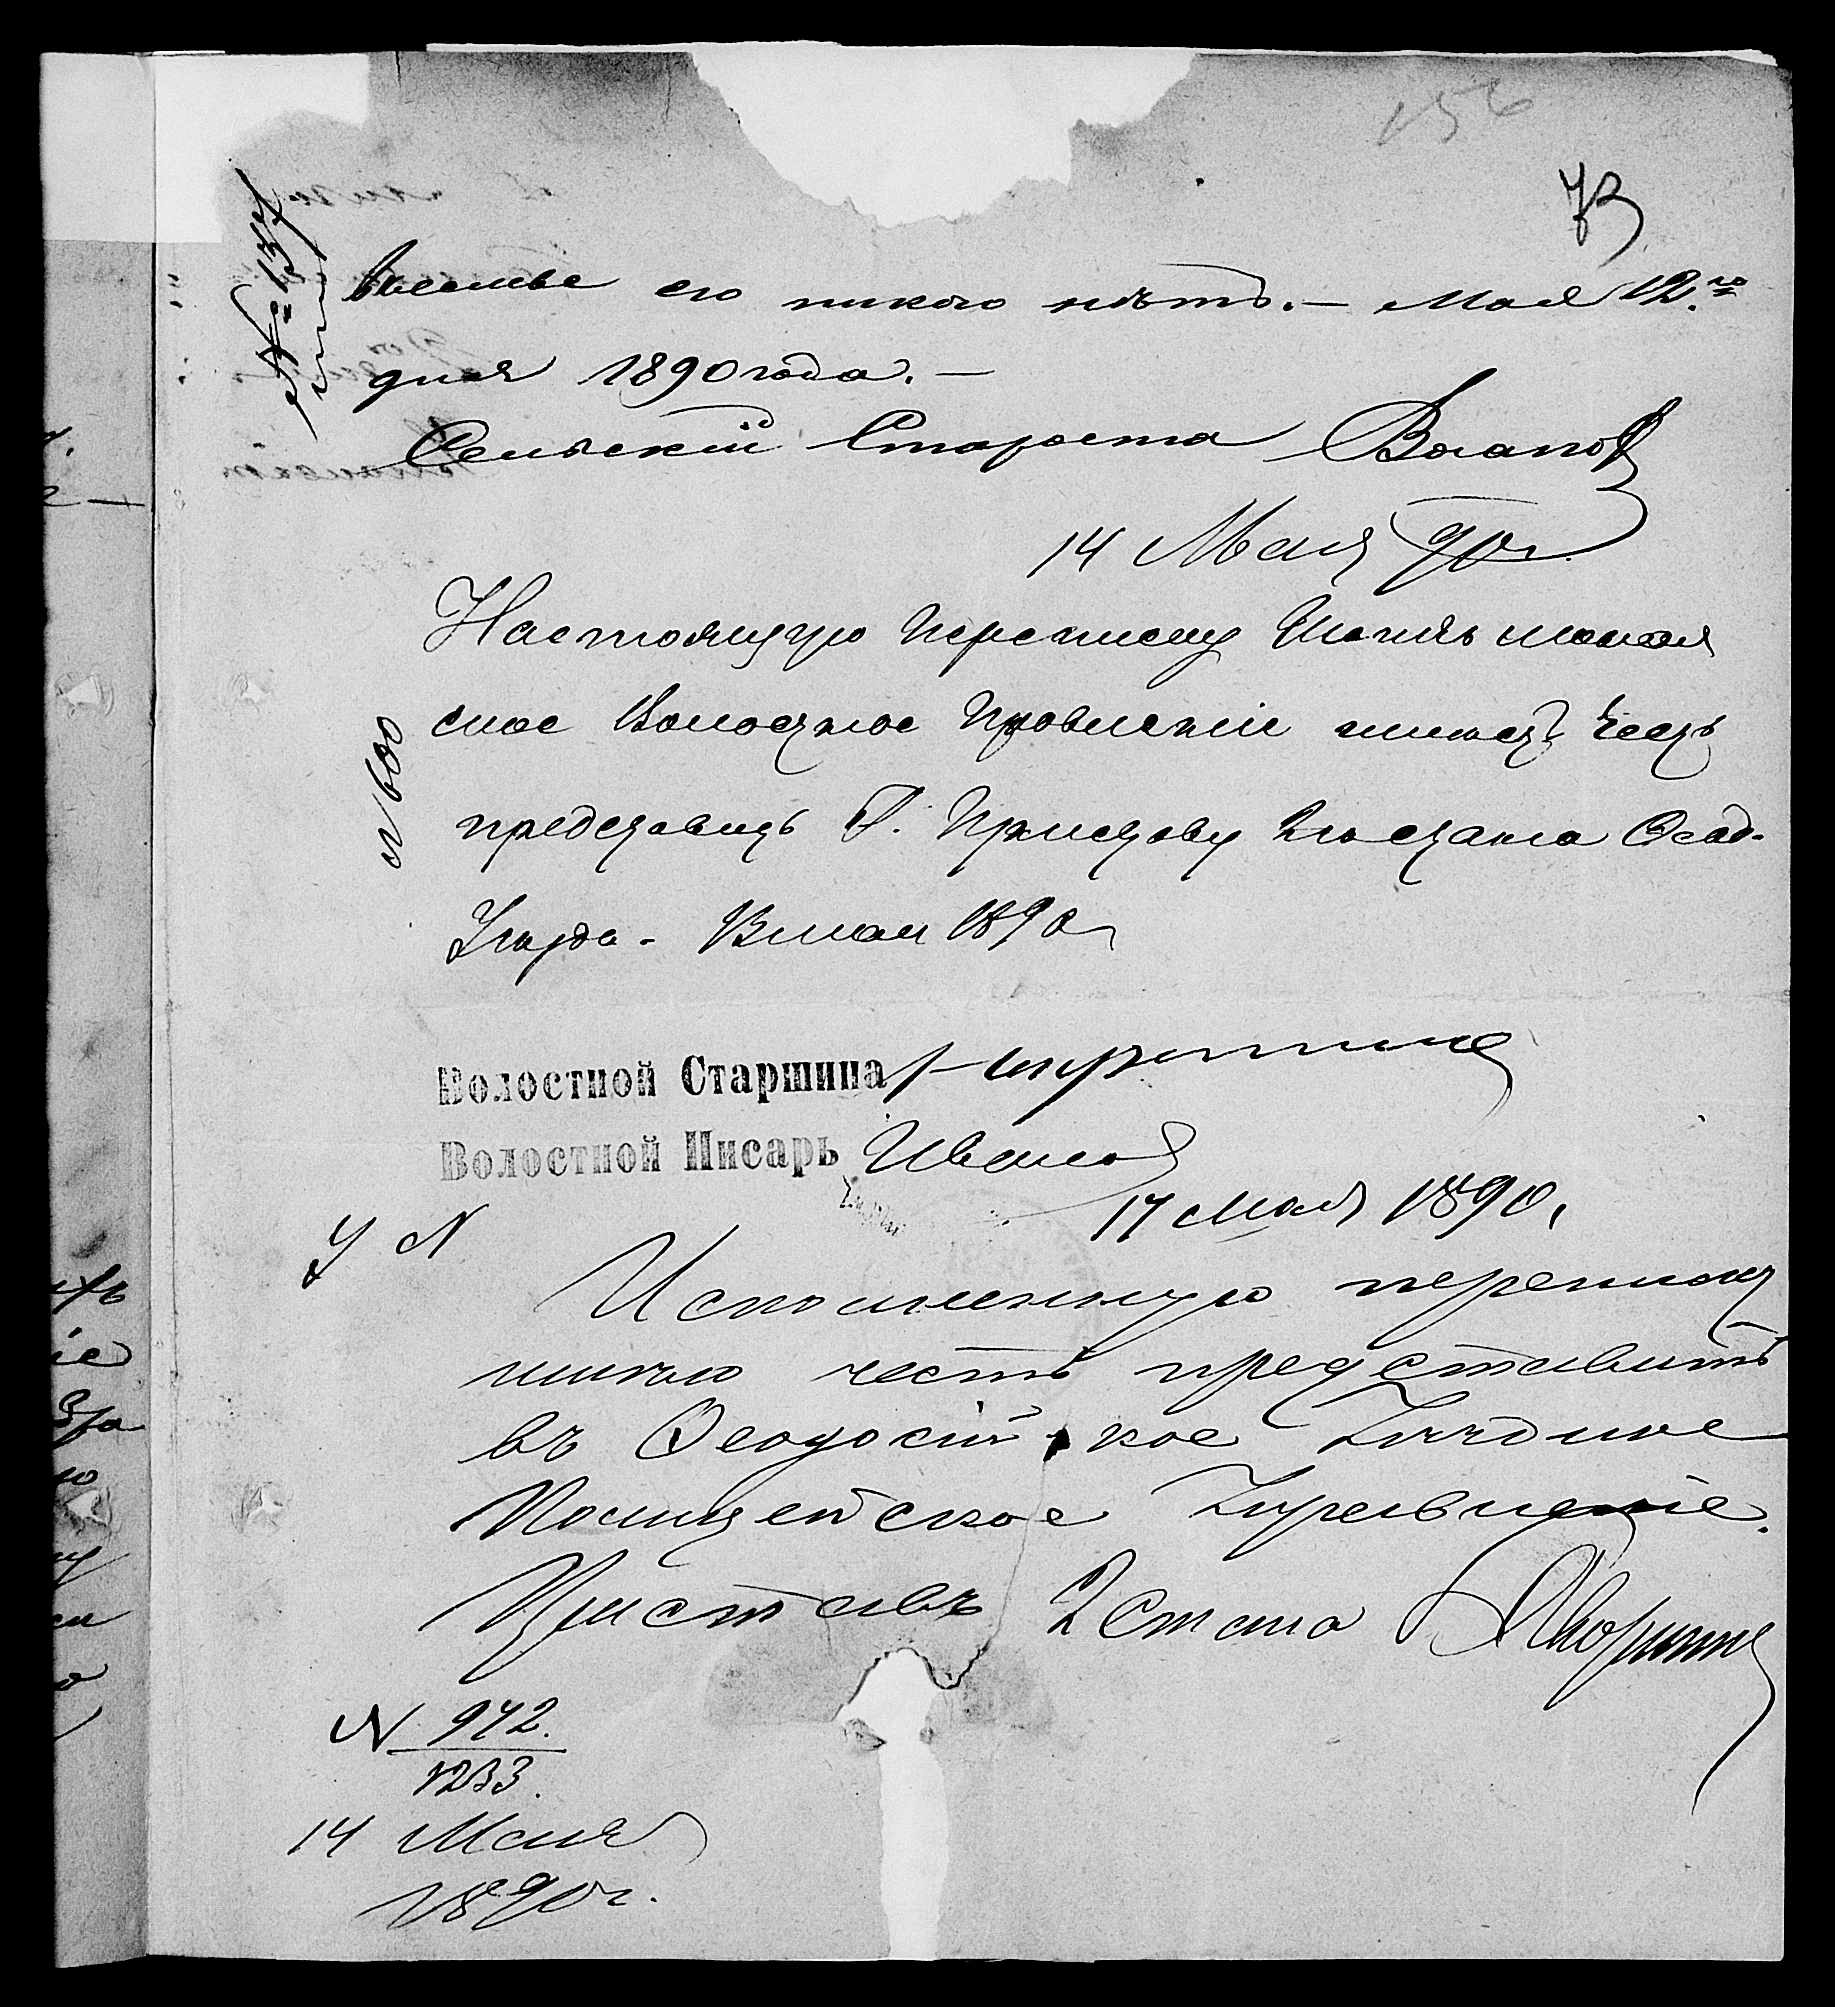 156
73
№ 137
всемье его никого нѣтъ. — Мая 12.го
дня 1890 года. —
Сельскій Староста
14 Мая 90 г
Настоящую переписку
ское Волостное Правленіе имѣетъ честь
№ 600
представить Г. Приставу 2го стана Феод.
Уѣзда. Вмаи 1890 г
Волостной Старшина
Волостной Писарь Иванов
17 Мая 1890,
У N
Исполненную переписку
имѣю честь представить
въ Феодосійское Уѣздное
Полицейское Управленіе.
Приставъ 2 Стана
N 972.
1233.
14 Мая
1890 г.